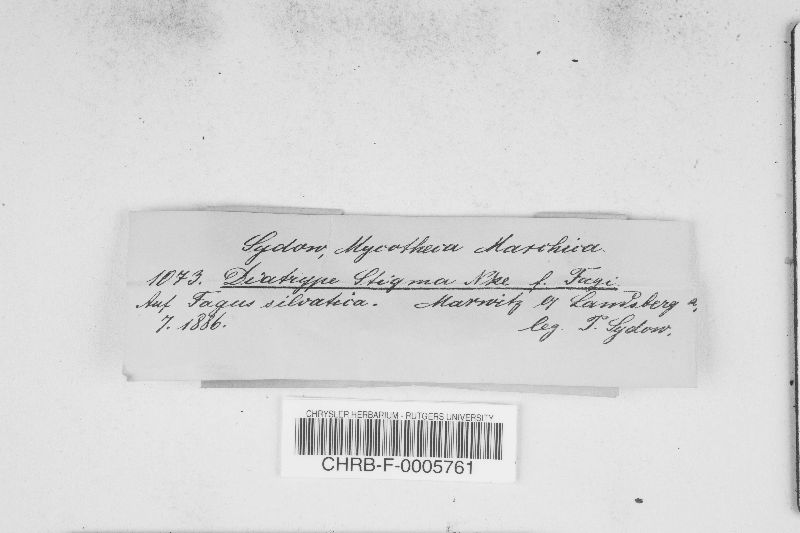 Sydow, Mycotheca Marchica.
1073. Diatrype Stigma Nke f. Fagi
Auf Fagus silvatica. Marwitz b/ Landsberg a,
7. 1886. leg. P. Sydow.
CHRYSLER HERBARIUM - RUTGERS UNIVERSITY
CHRB-F-0005761